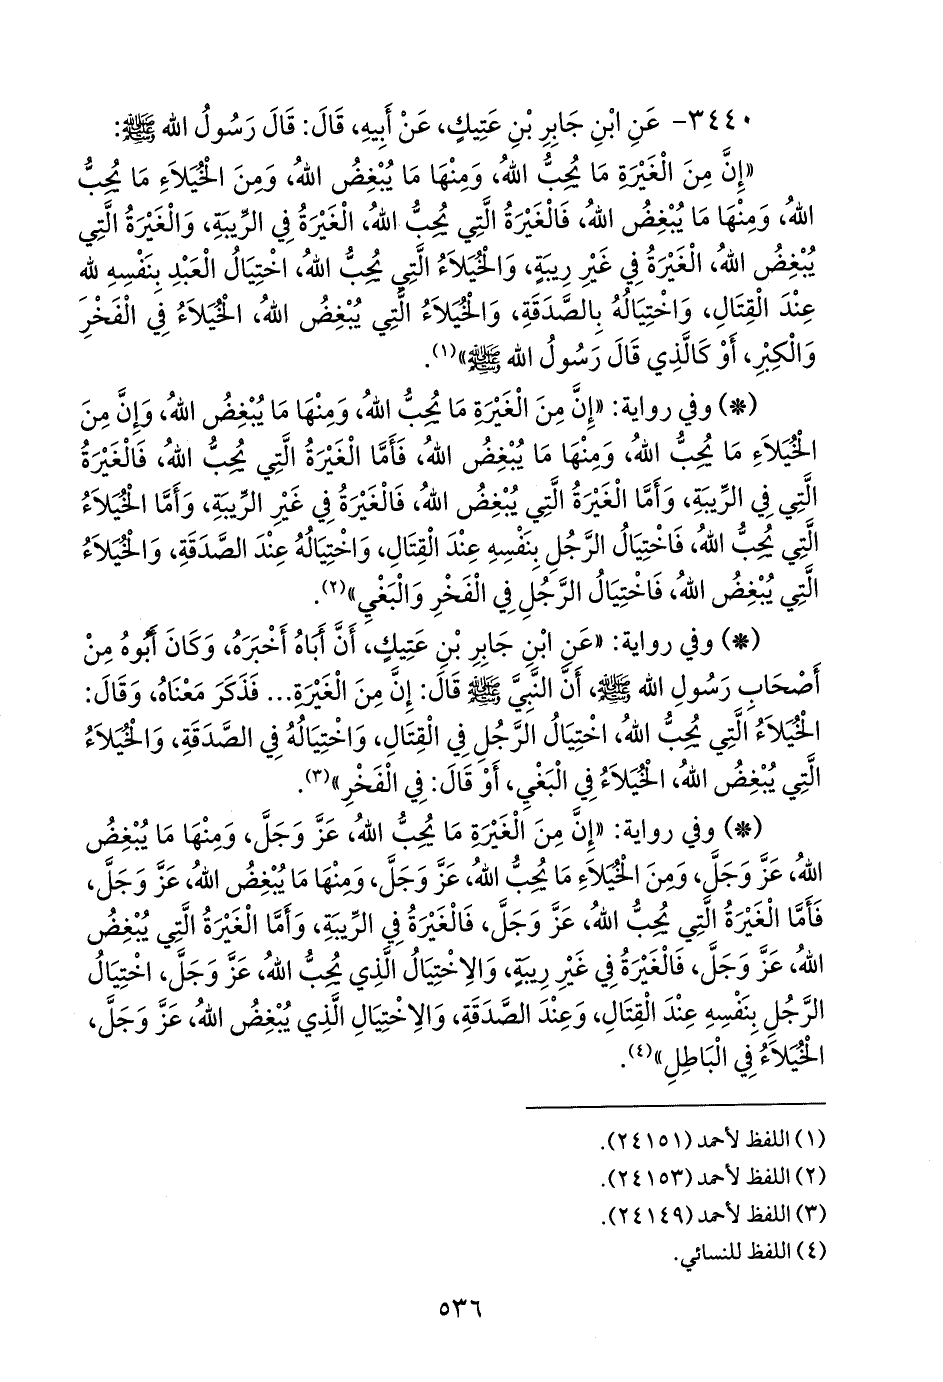 ٣٤٤٠- عَنِ ابْنِ جَابِرِ بْنِ عَتِيكٍ، عَنْ أَبِيهِ، قَالَ: قَالَ رَسُولُ الله ﷺ:
«إِنَّ مِنَ الْغَيْرَةِ مَا يُحِبُّ اللهُ، وَمِنْهَا مَا يُبْغِضُ اللهُ، وَمِنَ الْخُيَلاَءِ مَا يُحِبُّ
اللهُ، وَمِنْهَا مَا يُبْغِضُ اللهُ، فَالْغَيْرَةُ الَّتِي يُحِبُّ اللهُ، الْغَيْرَةُ فِي الرِّيبَةِ، وَالْغَيْرَةُ الَّتِي
يُبْغِضُ اللهُ، الْغَيْرَةُ فِي غَيْرِ رِيبَةٍ، وَالْخُيَلاَءُ الَّتِي يُحِبُّ اللهُ، اخْتِيَالُ الْعَبْدِ بِنَفْسِهِ لله
عِنْدَ الْقِتَالِ، وَاخْتِيَالُهُ بِالصَّدَقَةِ، وَالْخُيَلاَءُ الَّتِي يُبْغِضُ اللهُ، الْخُيَلاَءُ فِي الْفَخْرِ
وَالْكِبْرِ، أَوْ كَالَّذِي قَالَ رَسُولُ الله ﷺ»(١).
(*) وفي رواية: «إِنَّ مِنَ الْغَيْرَةِ مَا يُحِبُّ اللهُ، وَمِنْهَا مَا يُبْغِضُ اللهُ، وَإِنَّ مِنَ
الْخُيَلاَءِ مَا يُحِبُّ اللهُ، وَمِنْهَا مَا يُبْغِضُ اللهُ، فَأَمَّا الْغَيْرَةُ الَّتِي يُحِبُّ اللهُ، فَالْغَيْرَةُ
الَّتِي فِي الرِّيبَةِ، وَأَمَّا الْغَيْرَةُ الَّتِي يُبْغِضُ اللهُ، فَالْغَيْرَةُ فِي غَيْرِ الرِّيبَةِ، وَأَمَّا الْخُيَلاَءُ
الَّتِي يُحِبُّ اللهُ، فَاخْتِيَالُ الرَّجُلِ بِنَفْسِهِ عِنْدَ الْقِتَالِ، وَاخْتِيَالُهُ عِنْدَ الصَّدَقَةِ، وَالْخُيَلاَءُ
الَّتِي يُبْغِضُ اللهُ، فَاخْتِيَالُ الرَّجُلِ فِي الْفَخْرِ وَالْبَغْيِ»(٢).
(*) وفي رواية: «عَنِ ابْنِ جَابِرِ بْنِ عَتِيكٍ، أَنَّ أَبَاهُ أَخْبَرَهُ، وَكَانَ أَبُوهُ مِنْ
أَصْحَابِ رَسُولِ الله ﷺ، أَنَّ النَّبِيَّ ﷺ قَالَ: إِنَّ مِنَ الْغَيْرَةِ... فَذَكَرَ مَعْنَاهُ، وَقَالَ:
الْخُيَلاَءُ الَّتِي يُحِبُّ اللهُ، اخْتِيَالُ الرَّجُلِ فِي الْقِتَالِ، وَاخْتِيَالُهُ فِي الصَّدَقَةِ، وَالْخُيَلاَءُ
الَّتِي يُبْغِضُ اللهُ، الْخُيَلاَءُ فِي الْبَغْيِ، أَوْ قَالَ: فِي الْفَخْرِ»(٣).
(*) وفي رواية: «إِنَّ مِنَ الْغَيْرَةِ مَا يُحِبُّ اللهُ، عَزَّ وَجَلَّ، وَمِنْهَا مَا يُبْغِضُ
اللهُ، عَزَّ وَجَلَّ، وَمِنَ الْخُيَلاَءِ مَا يُحِبُّ اللهُ، عَزَّ وَجَلَّ، وَمِنْهَا مَا يُبْغِضُ اللهُ، عَزَّ وَجَلَّ،
فَأَمَّا الْغَيْرَةُ الَّتِي يُحِبُّ اللهُ، عَزَّ وَجَلَّ، فَالْغَيْرَةُ فِي الرِّيبَةِ، وَأَمَّا الْغَيْرَةُ الَّتِي يُبْغِضُ
اللهُ، عَزَّ وَجَلَّ، فَالْغَيْرَةُ فِي غَيْرِ رِيبَةٍ، وَالاِخْتِيَالُ الَّذِي يُحِبُّ اللهُ، عَزَّ وَجَلَّ، اخْتِيَالُ
الرَّجُلِ بِنَفْسِهِ عِنْدَ الْقِتَالِ، وَعِنْدَ الصَّدَقَةِ، وَالاِخْتِيَالِ الَّذِي يُبْغِضُ اللهُ، عَزَّ وَجَلَّ،
الْخُيَلاَءُ فِي الْبَاطِلِ»(٤).
(١) اللفظ لأحمد (٢٤١٥١).
(٢) اللفظ لأحمد (٢٤١٥٣).
(٣) اللفظ لأحمد (٢٤١٤٩).
(٤) اللفظ للنسائي.
٥٣٦